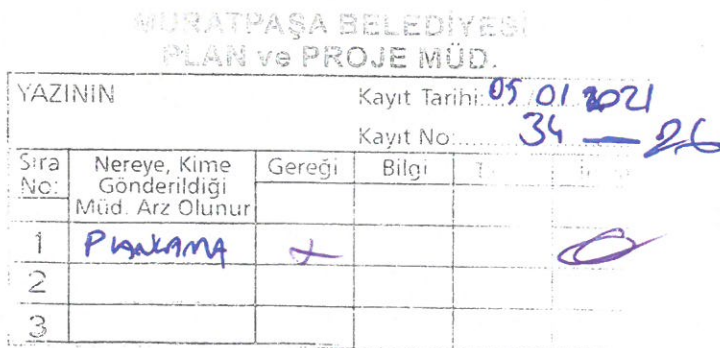 MURATPAŞA BELEDİYESİ
PLAN ve PROJE MÜD.
YAZININ Kayıt Tarihi: 05 01 2021
Kayıt No: 34 — 26
Sıra No: Nereye, Kime Gönderildiği Müd. Arz Olunur Gereği Bilgi
1 PLANLAMA
2
3